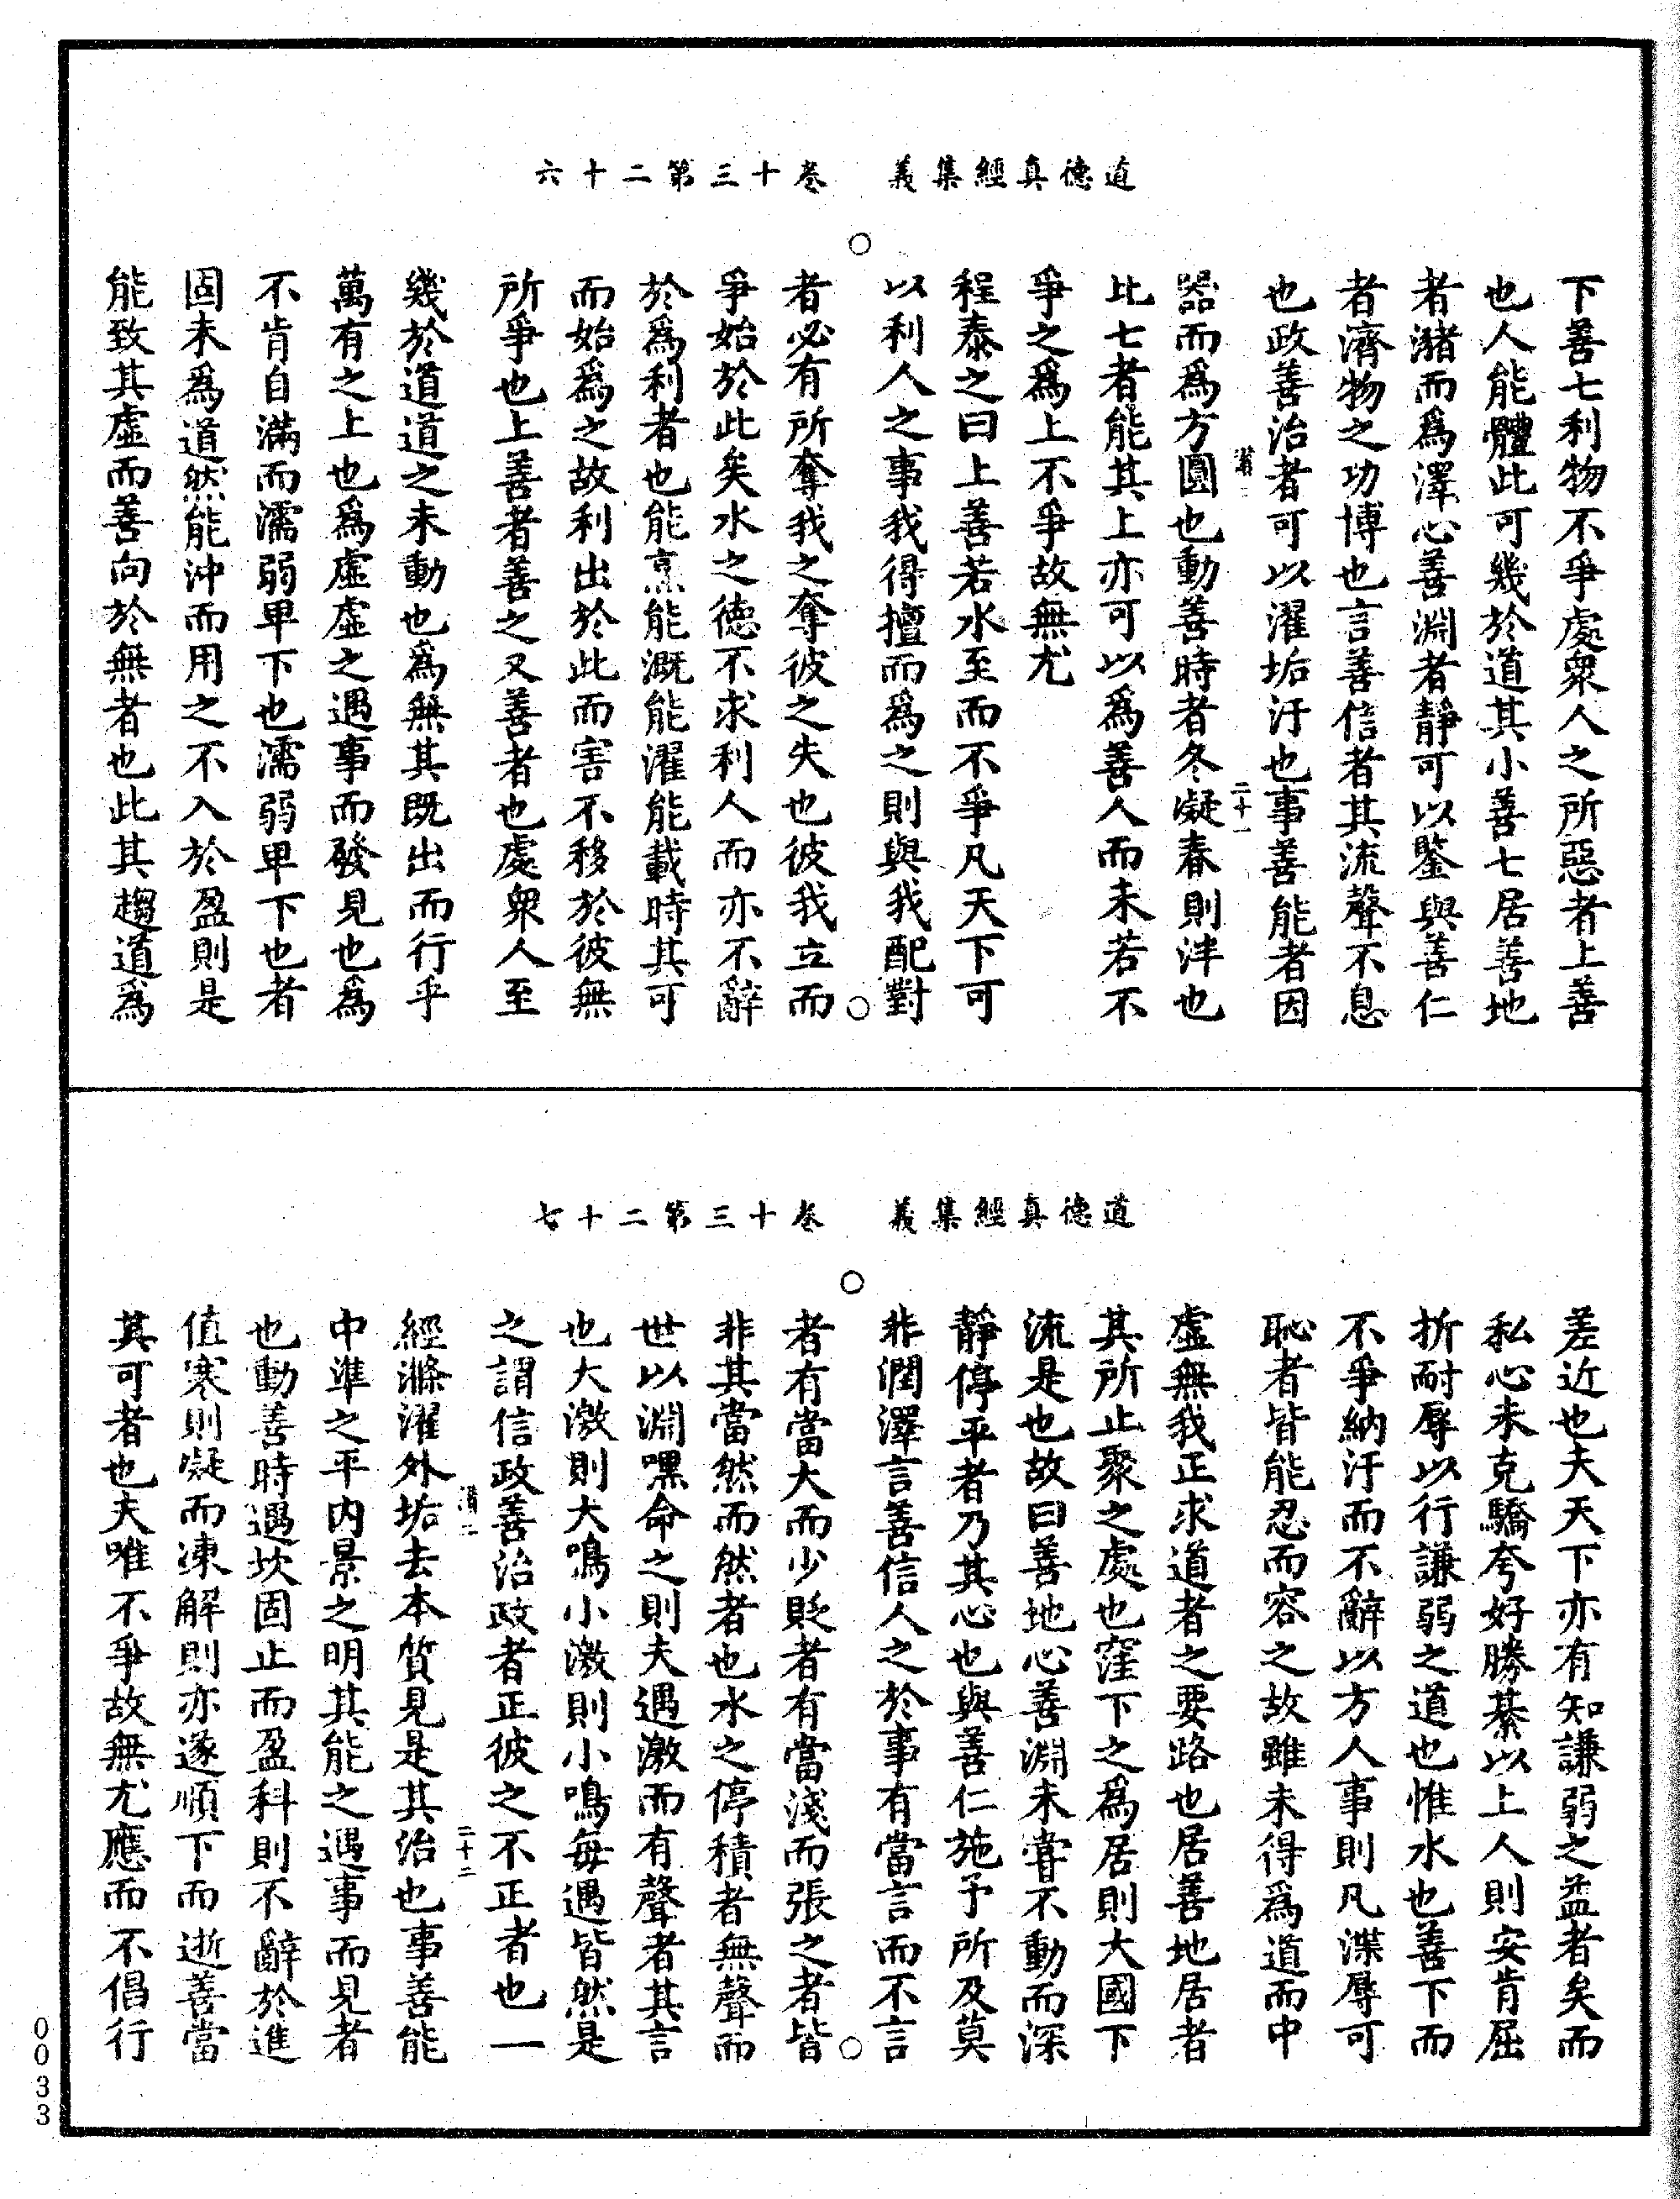 道德真經集義　卷十三第二十六
下善七利物不爭處衆人之所惡者上善
也人能體此可幾於道其小善七居善地
者瀦而爲澤心善淵者靜可以鑒與善仁
者濟物之功博也言善信者其流聲不息
也政善治者可以濯垢汙也事善能者因
二十一
器而爲方圓也動善時者冬凝春則泮也
比七者能其上亦可以爲善人而未若不
爭之爲上不爭故無尤
程泰之曰上善若水至而不爭凡天下可
以利人之事我得擅而爲之則與我配對
者必有所奪我之奪彼之失也彼我立而
爭始於此矣水之德不求利人而亦不辭
於爲利者也能烹能溉能濯能載時其可
而始爲之故利出於此而害不移於彼無
所爭也上善者善之又善者也處衆人至
幾於道道之未動也爲無其既出而行乎
萬有之上也爲虛虛之遇事而發見也爲
不肯自滿而濡弱卑下也濡弱卑下也者
固未爲道然能沖而用之不入於盈則是
能致其虛而善向於無者也此其趨道爲
道德真經集義　卷十三第二十七
差近也夫天下亦有知謙弱之益者矣而
私心未克驕夸好勝綦以上人則安肯屈
折耐辱以行謙弱之道也惟水也善下而
不爭納汙而不辭以方人事則凡渫辱可
恥者皆能忍而容之故雖未得爲道而中
虛無我正求道者之要路也居善地居者
其所止聚之處也窪下之爲居則大國下
流是也故曰善地心善淵未嘗不動而深
靜停平者乃其心也與善仁施予所及莫
非潤澤言善信人之於事有當言而不言
者有當大而少貶者有當淺而張之者皆
非其當然而然者也水之停積者無聲而
世以淵嘿命之則夫遇激而有聲者其言
也大激則大鳴小激則小鳴每遇皆然是
之謂信政善治政者正彼之不正者也一
二十二
經滌濯外垢去本質見是其治也事善能
中準之平内景之明其能之遇事而見者
也動善時遇坎固止而盈科則不辭於進
值寒則凝而凍解則亦遂順下而逝善當
其可者也夫唯不爭故無尤應而不倡行
0033